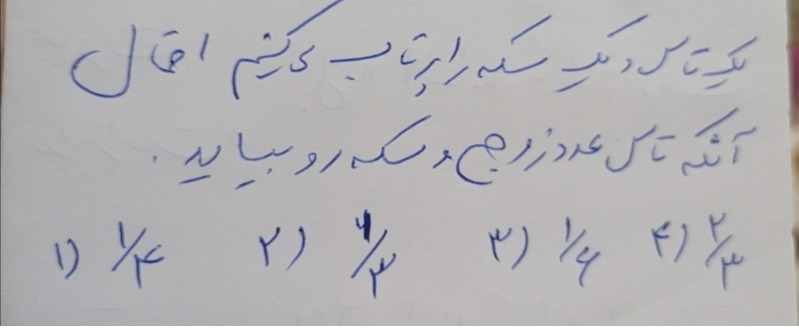 یک تاس و یک سکه را پرتاب می‌کنیم احتمال
آنکه تاس عدد زوج و سکه رو بیاید.
۱) ۱/۴ ۲) ۱/۳ ۳) ۱/۶ ۴) ۲/۳